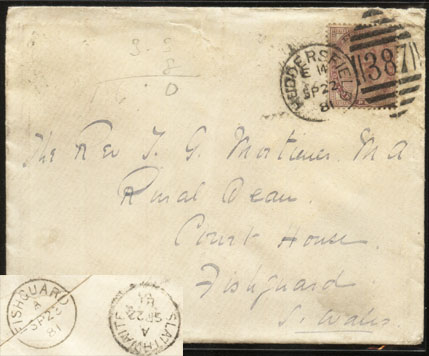 HUDDERSFIELD
E 14
SP 22
81
387
The Rev T. G. Mortimer M A
Rural Dean
Court House
Fishguard
S. Wales
FISHGUARD
A
SP 23
81
SLAITHWAITE
A
SP 22
81